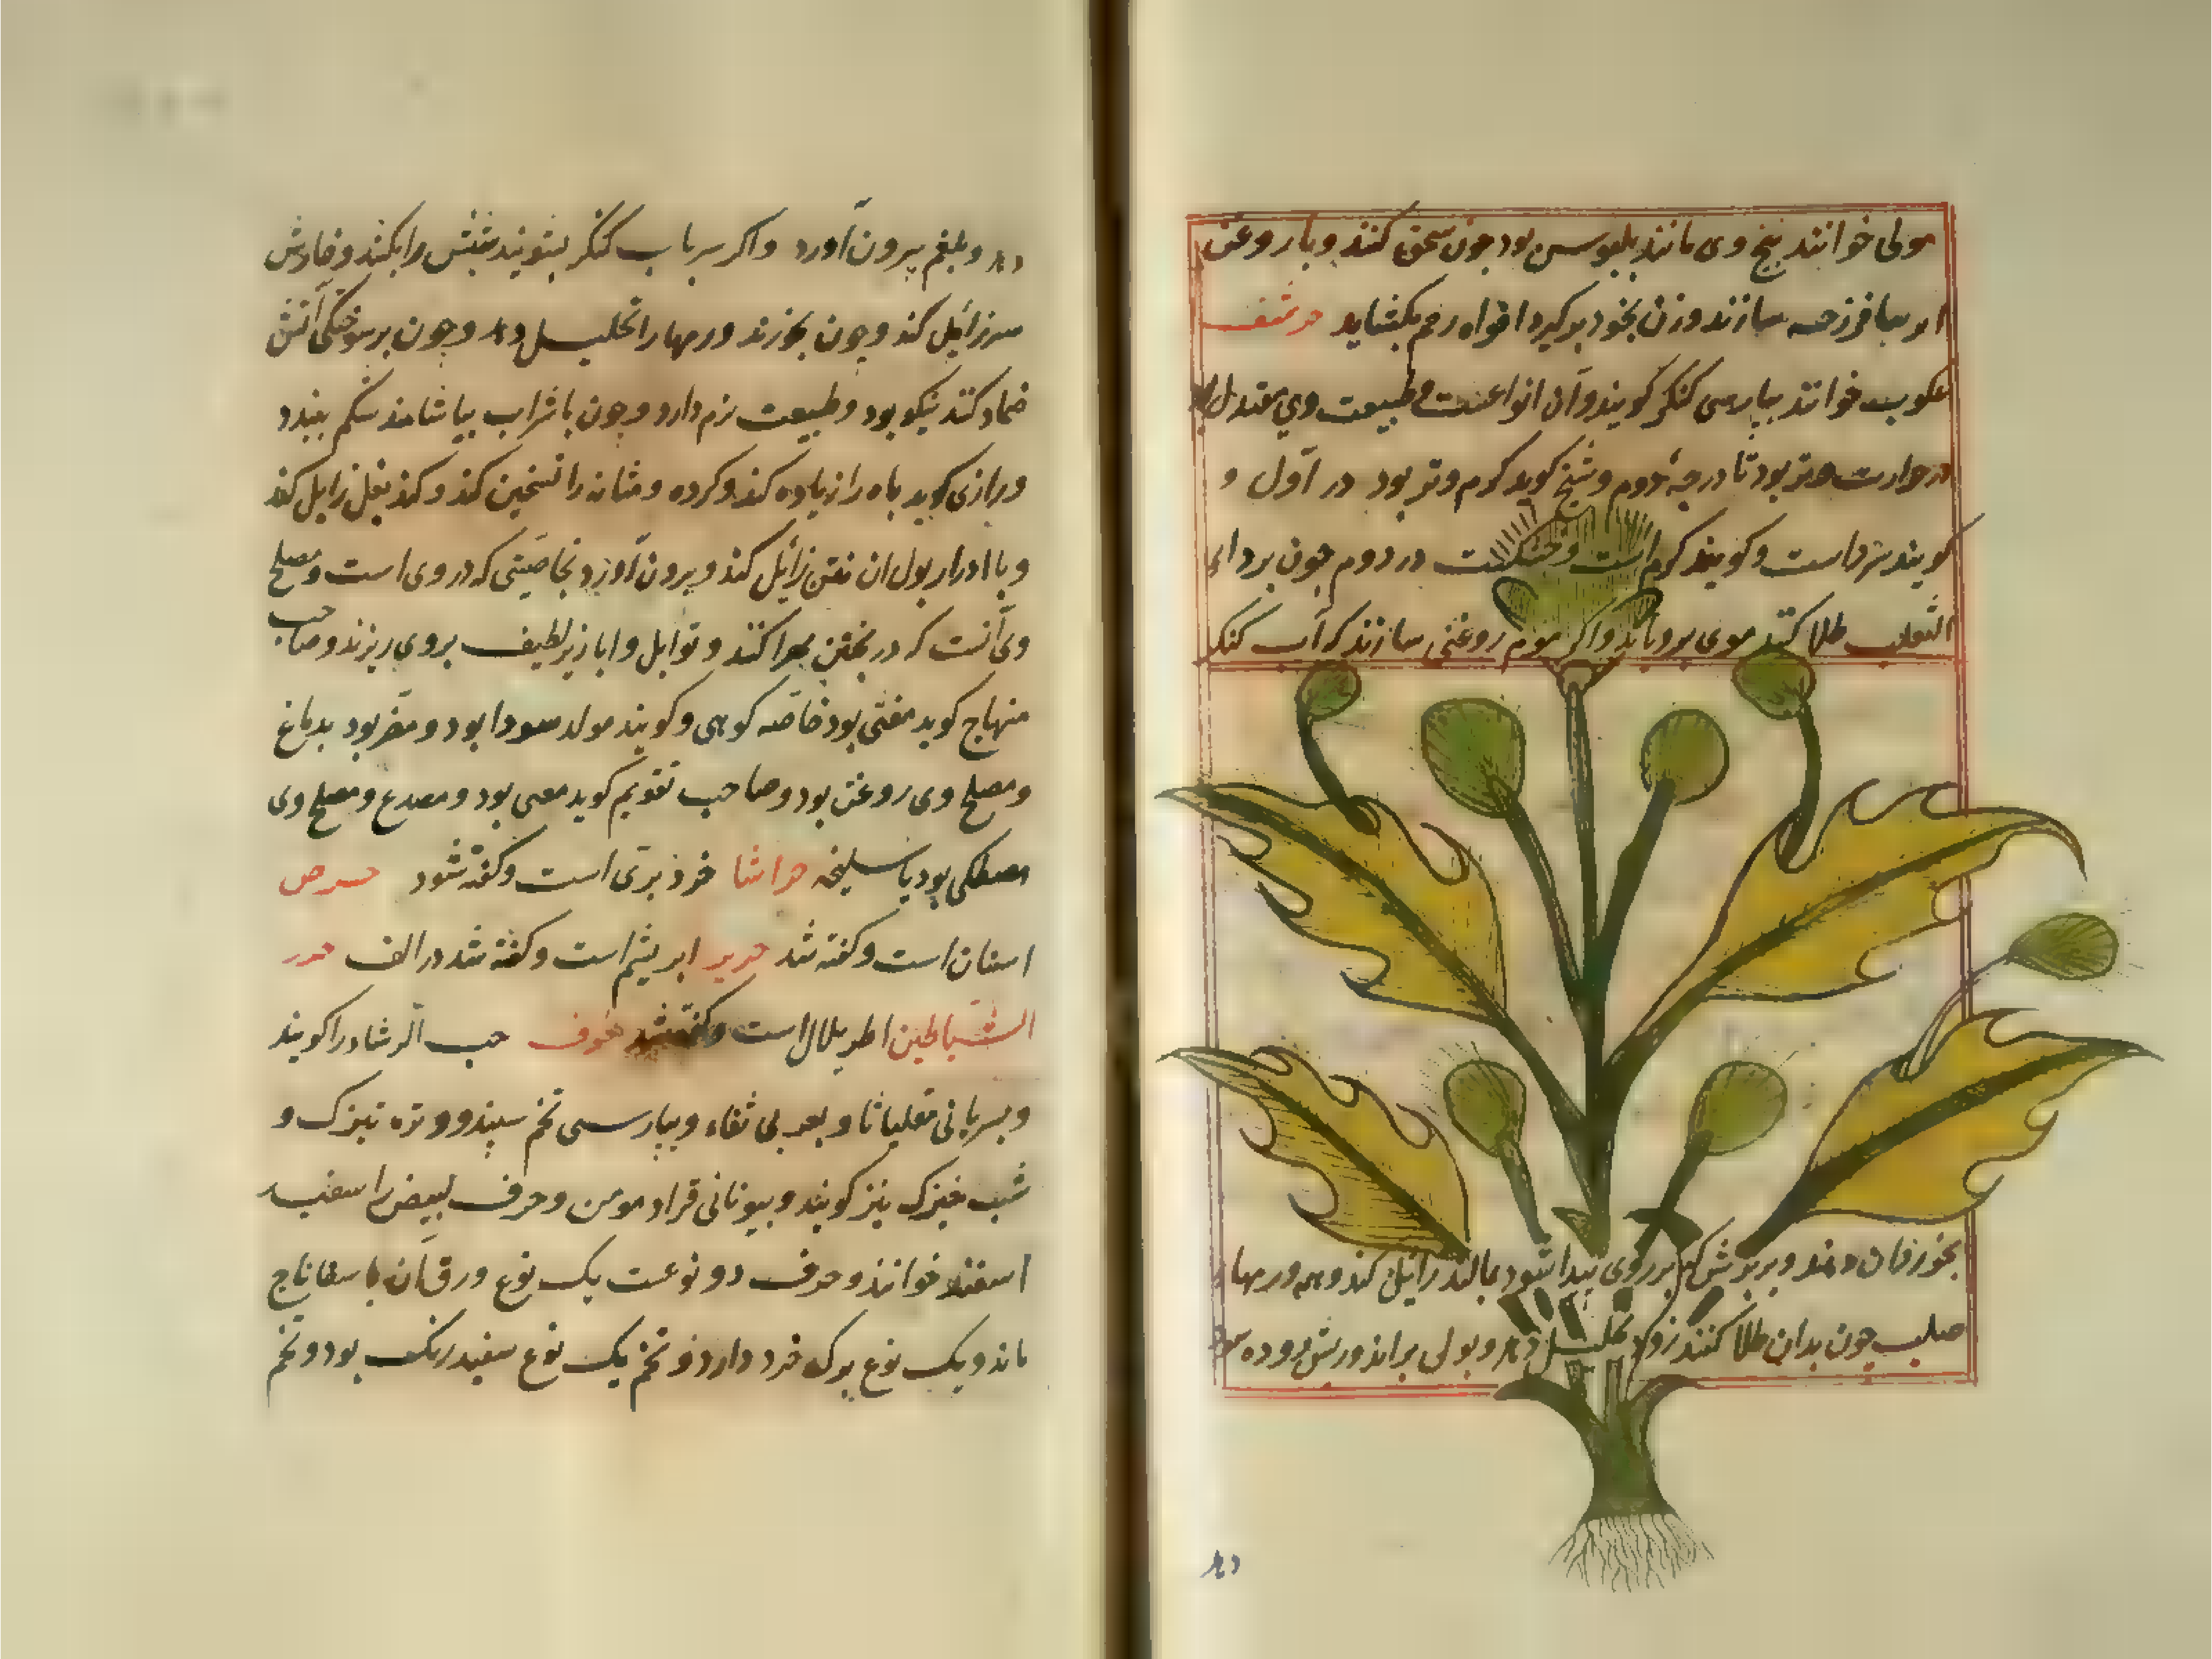 مولی خوانند بیخ وی مانند بلبوس بود چون سحق کنند و با روغن
ایرسا فرزجه سازند و زن بخود برگیرد افواه رحم بکشاید حرشف
عکوب خوانند بپارسی کنکر کویند و آن انواعست و طبیعت وی معتدل
در حرارت وتر بود تا درجه دوم و شیخ کوید کرم و تر بود در اول و
کویند سرد است و کویند کرم است و خشکست در دوم چون بر داء
الثعلب طلا کنند موی برویاند و اکر موم روغنی سازند که آب کنکر
بخورد آن دهند و بر برش که بر روی پیدا شود بمالند زایل کند و همه ورمهاء
صلب چون بدان طلا کنند زود تحلیل دهد و بولی براند و ریش روده
دهد و بلغم بیرون آورد و اکر سر باب کنکر بشویند شپش را بکشد و خارش
سر زایل کند و چون بخورند ورمها را تحلیل دهد و چون بر سوختکی آتش
ضماد کنند نیکو بود و طبیعت نرم دارد و چون با شراب بیاشامند شکم ببندد
و رازی کوید باه را زیاده کند و کرده و مثانه را تسخین کند و کند بغل زایل کند
و با ادرار بول ان نتن زایل کند و بیرون آورد بخاصیتی که در وی است و مصلح
وی آنست که در پختن مهرا کنند و توابل و ابازیر لطیف بر وی ریزند و صاحب
منهاج کوید مغثی بود خاصه کوهی و کویند مولد سودا بود و مضر بود بدماغ
و مصلح وی روغن بود و صاحب تقویم کوید معی بود و مصدع و مصلح وی
مصطکی بود یا سلیخه حراشا خرد بری است و کفته شود حرص
اسنان است و کفته شد حریر ابریشم است و کفته شد در الف حرر
الشیاطین اطریلال است و کفته شد حرف حب الرشاد را کویند
و بسریانی مقلیاثا و بعربی ثفاء و بپارسی تخم سپندو و تره تیزک و
شب خیزک نیز کویند و بیونانی قرادمومن و حرف ابیض را اسفید
اسفند خوانند و حرف دو نوعست یک نوع ورق آن باسفاناج
ماند و یک نوع برک خرد دارد و تخم یک نوع سفید رنک بود و تخم